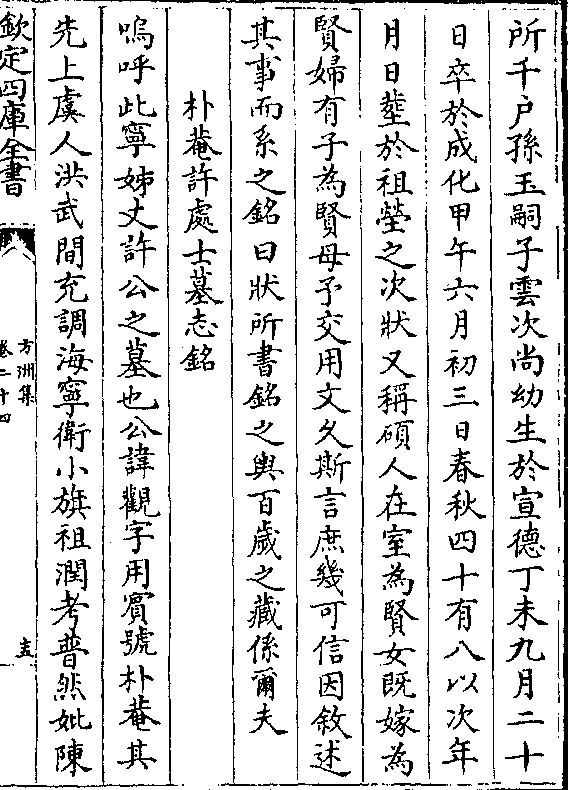 所千户孫玉嗣子雲次尚幼生於宣德丁未九月二十
日卒於成化甲午六月初三日春秋四十有八以次年
月日塟於祖塋之次狀又稱碩人在室為賢女既嫁為
賢婦有子為賢母予交用文久斯言庶幾可信因敘述
其事而系之銘曰狀所書銘之輿百歲之藏係爾夫
朴菴許處士墓志銘
嗚呼此寧姊丈許公之墓也公諱觀字用賔號朴菴其
先上虞人洪武間充調海寧衛小旗祖潤考普然妣陳
欽定四庫全書
方洲集
卷二十四